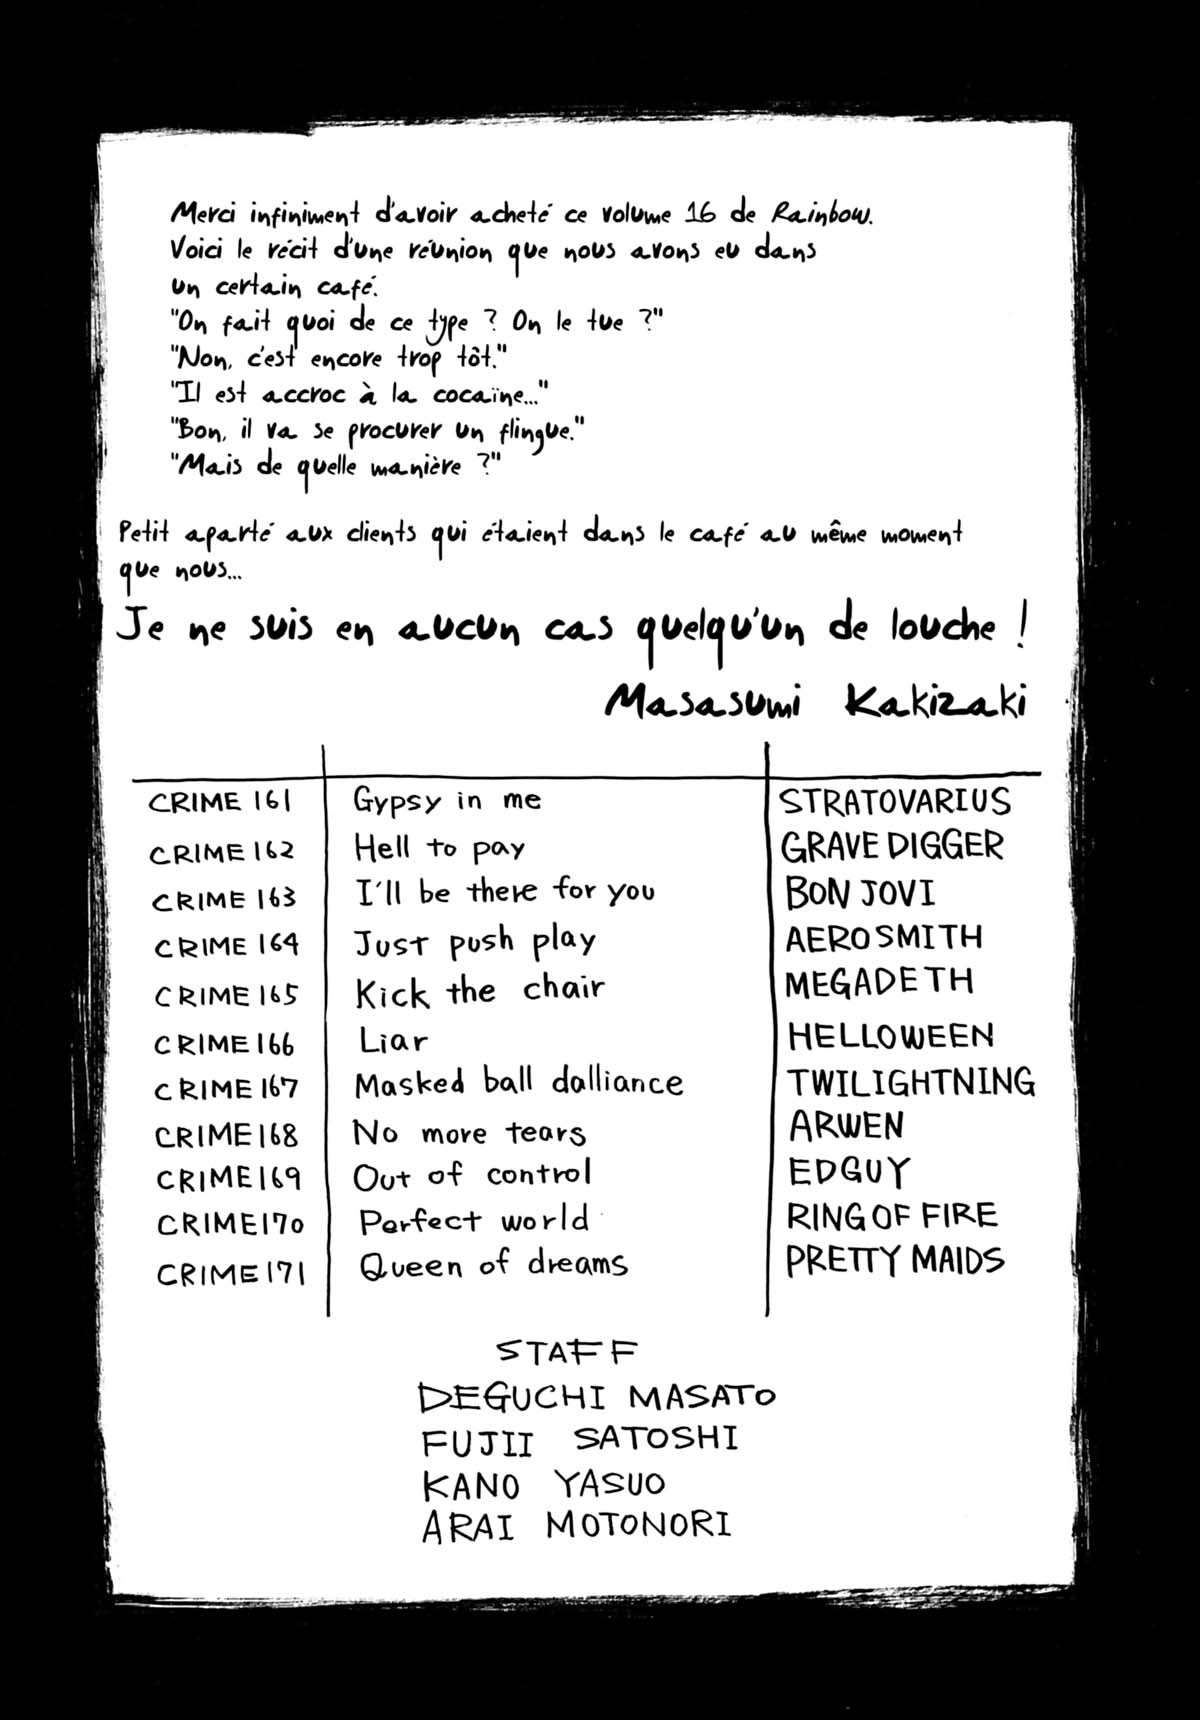 Merci infiniment d'avoir acheté ce volume 16 de Rainbow.
Voici le récit d'une réunion que nous avons eu dans
un certain café.
"On fait quoi de ce type ? On le tue ?"
"Non, c'est encore trop tôt."
"Il est accroc à la cocaïne..."
"Bon, il va se procurer un flingue."
"Mais de quelle manière ?"
Petit aparté aux clients qui étaient dans le café au même moment
que nous...
Je ne suis en aucun cas quelqu'un de louche !
Masasumi Kakizaki
CRIME 161 Gypsy in me STRATOVARIUS
CRIME 162 Hell to pay GRAVE DIGGER
CRIME 163 I'll be there for you BON JOVI
CRIME 164 Just push play AEROSMITH
CRIME 165 Kick the chair MEGADETH
CRIME 166 Liar HELLOWEEN
CRIME 167 Masked ball dalliance TWILIGHTNING
CRIME 168 No more tears ARWEN
CRIME 169 Out of control EDGUY
CRIME 170 Perfect world RING OF FIRE
CRIME 171 Queen of dreams PRETTY MAIDS
STAFF
DEGUCHI MASATO
FUJII SATOSHI
KANO YASUO
ARAI MOTONORI